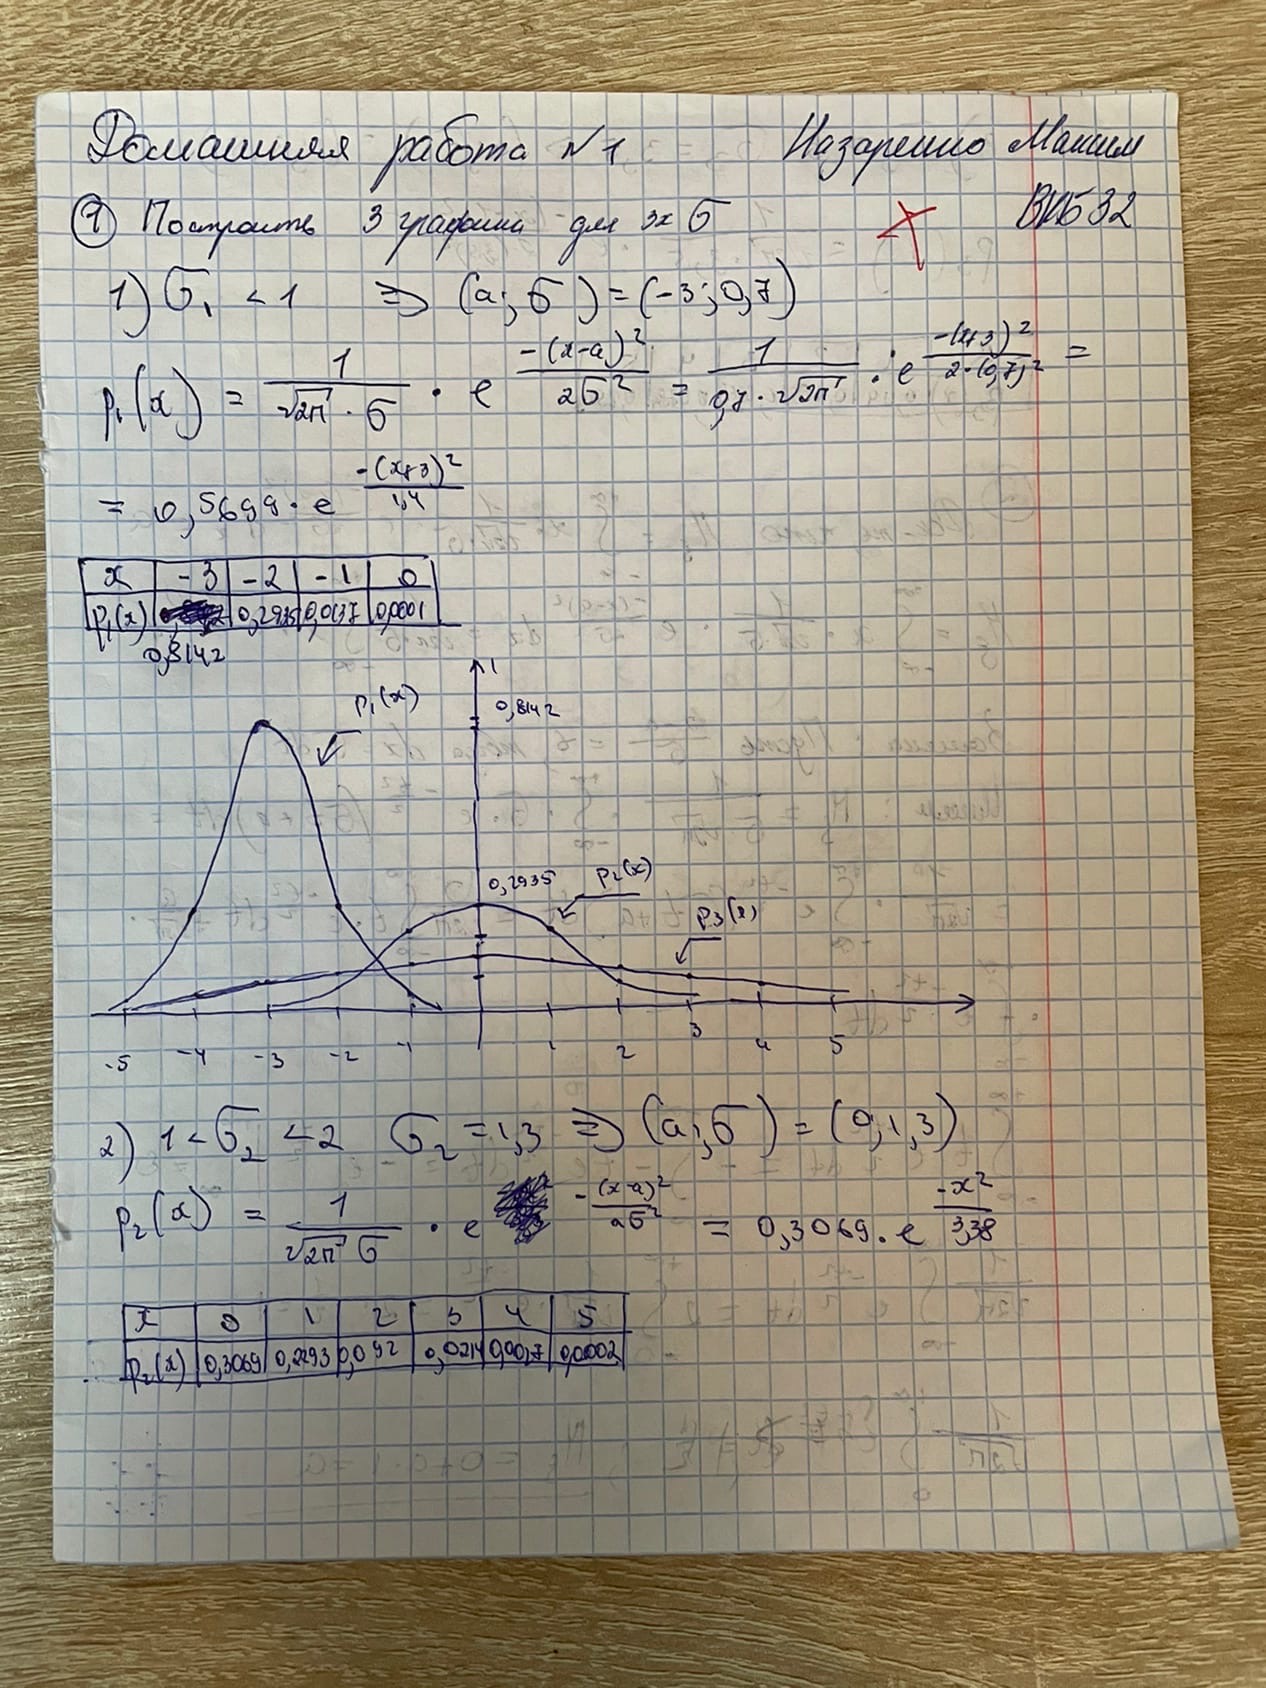 Домашняя работа №1 Назаренко Максим
ВКБ32
① Построить 3 графика для 3х σ
1) σ₁ < 1 ⇒ (a; σ) = (-3; 0,7)
p₁(x) = 1/(√2π · σ) · e^(-(x-a)²/2σ²) = 1/(0,7 · √2π) · e^(-(x+3)²/2·(0,7)²) =
= 0,5699 · e^(-(x+3)²/1,4)
x -3 -2 -1 0
p₁(x) 0,2935 0,0137 0,0001
0,8142
1
p₁(x)
0,8142
0,2935
p₂(x)
p₃(x)
-5 -4 -3 -2 -1 1 2 3 4 5
2) 1 < σ₂ < 2 σ₂ = 1,3 ⇒ (a; σ) = (0; 1,3)
p₂(x) = 1/(√2π σ) · e^(-(x-a)²/2σ²) = 0,3069 · e^(-x²/3,38)
x 0 1 2 3 4 5
p₂(x) 0,3069 0,2293 0,092 0,0214 0,0027 0,0002